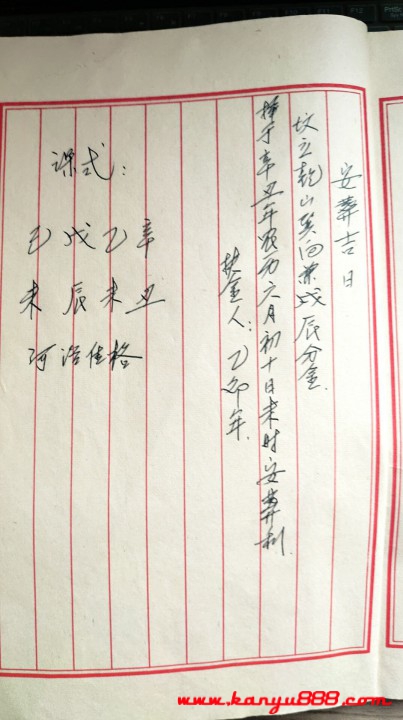 安葬吉日
坟立乾山巽向兼戌辰分金.
择于辛丑年农历六月初十日未时安葬利.
扶金人：乙卯年.
课式：
己戊乙辛
未辰未丑
河洛佳格
www.kanyu888.com